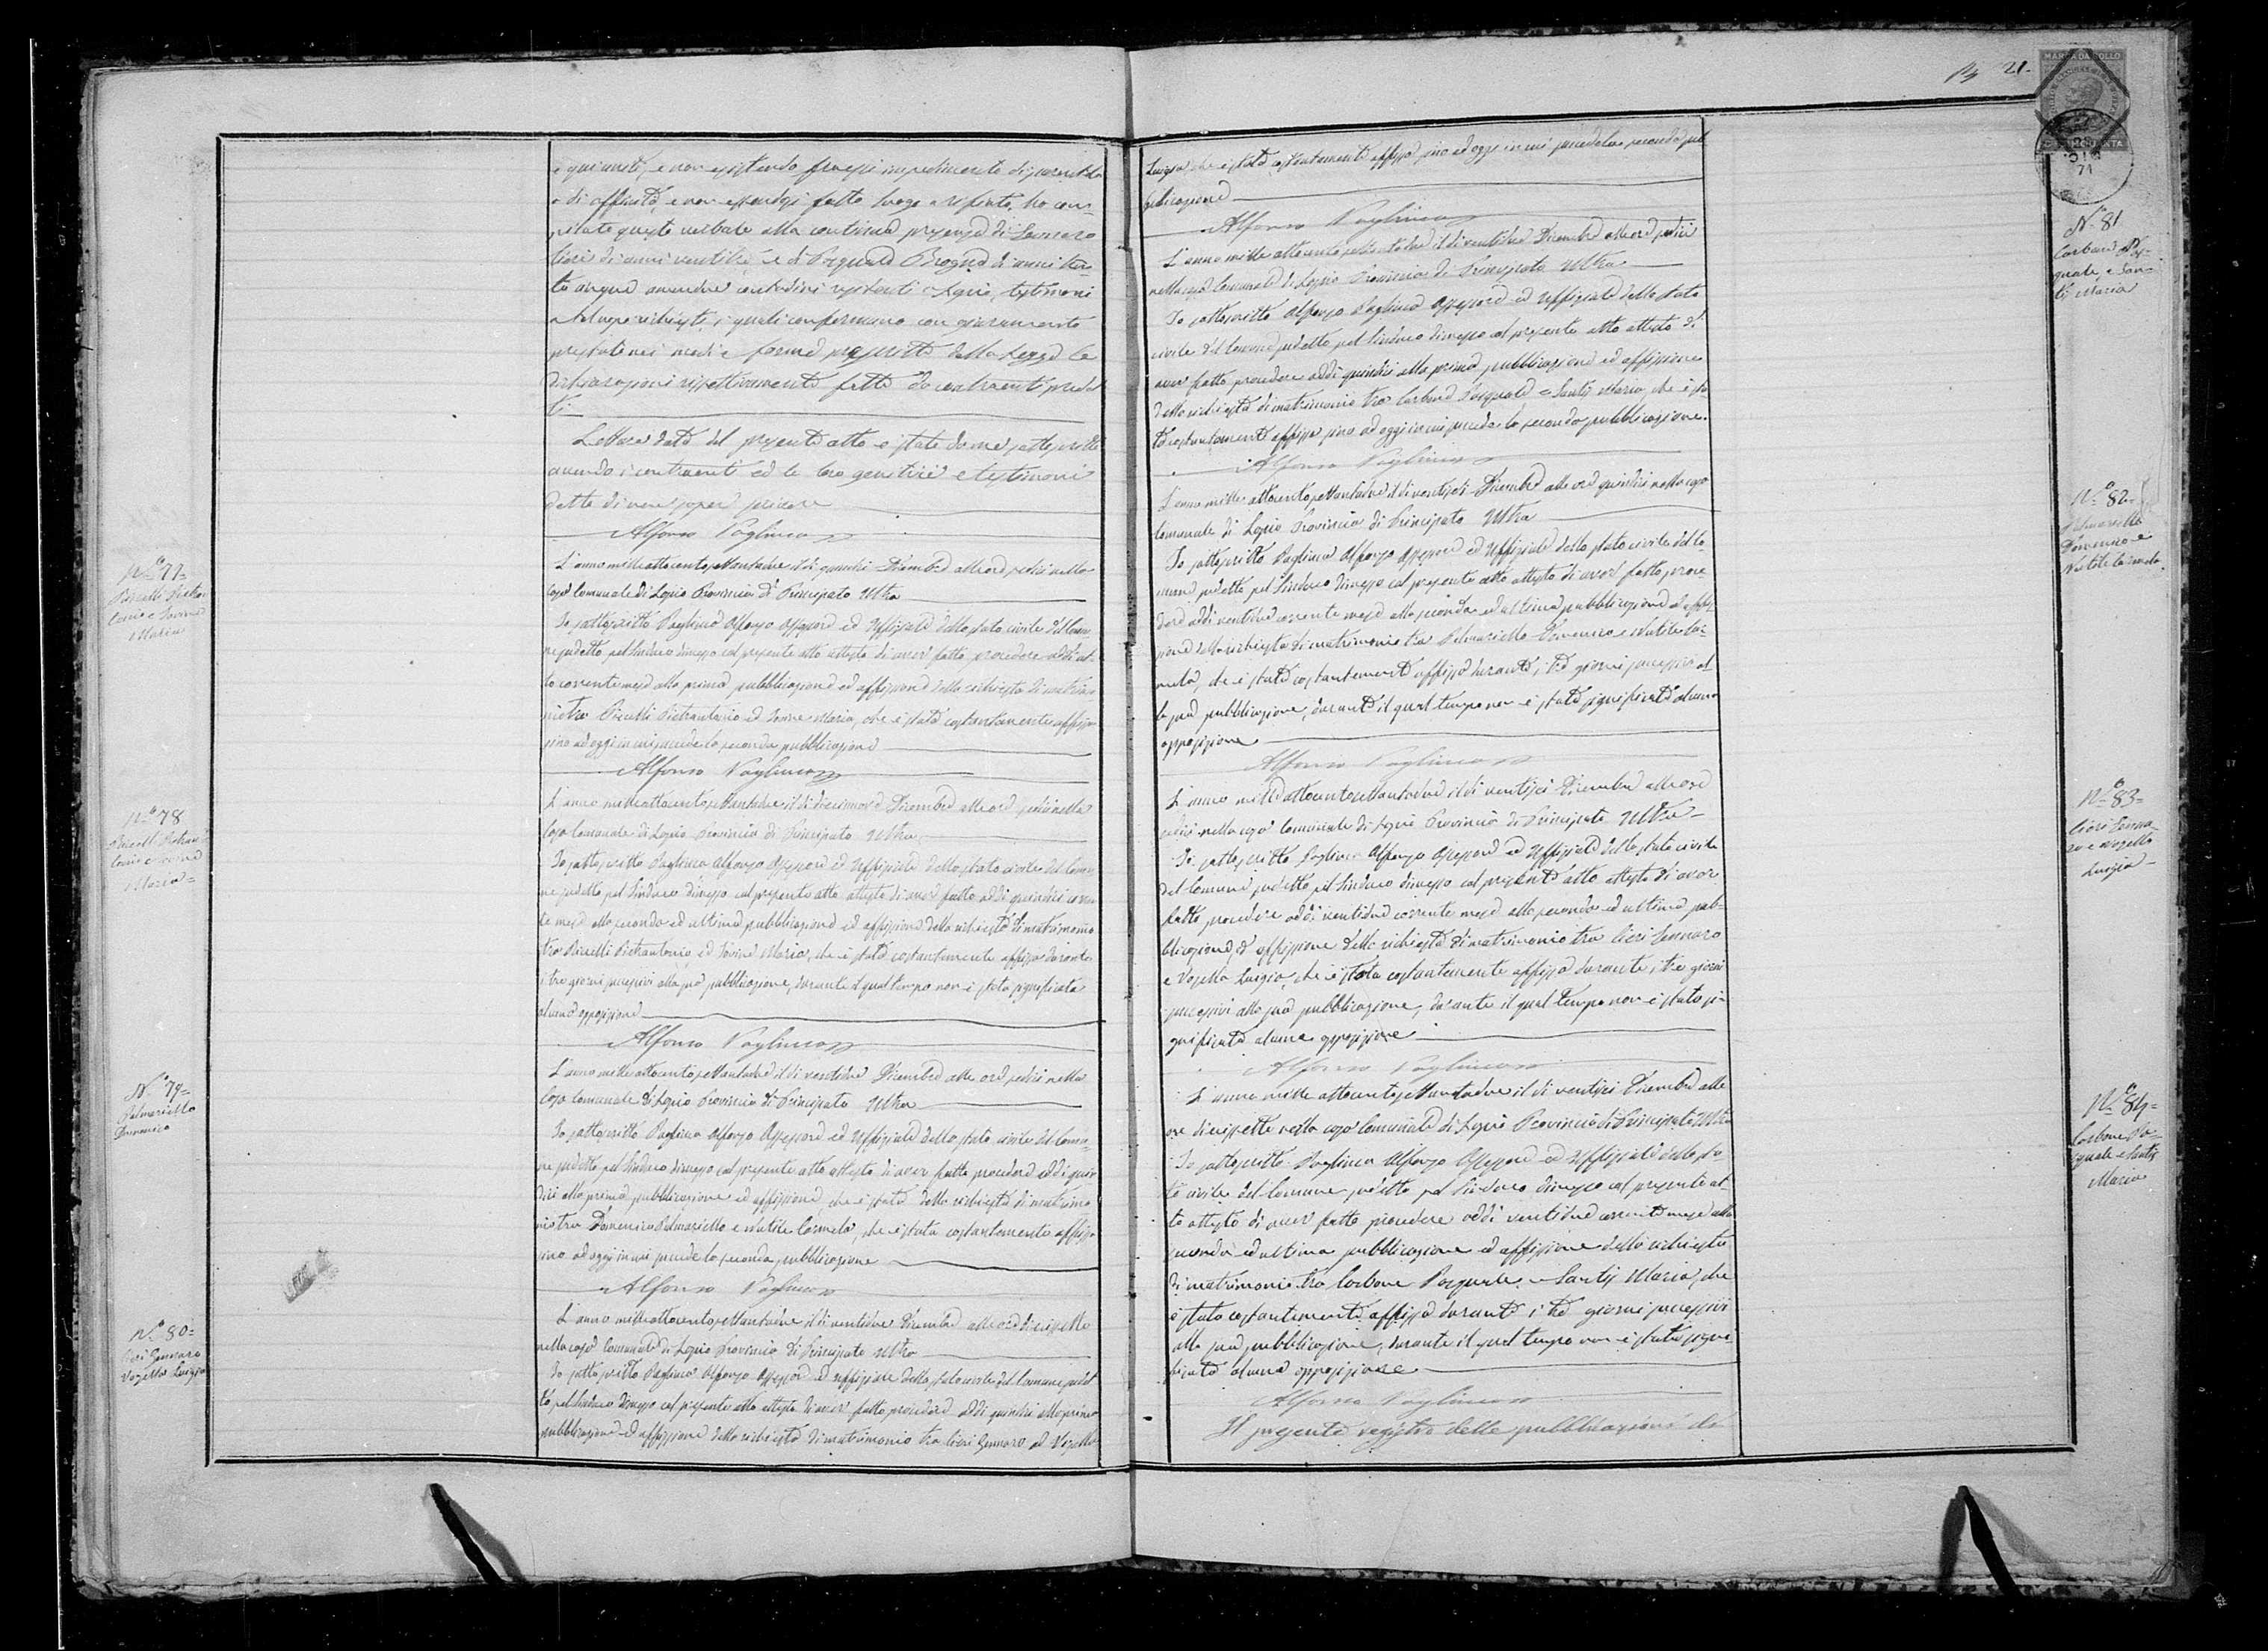 21.
MARCA DA BOLLO
e quiunito, e non esistendo fra essi impedimento di parentela
o di affinità, e non essendosi fatto luogo a rifiuto, ho com-
pilato questo verbale alla continua presenza di Gennaro
Cioxi di anni ventitre e di Pasquale di anni tren-
ta cinque amendue contadini residenti a testimoni
all'uopo richiesti, i quali confermano con giuramento
prestato nei modi e forme prescritte dalla Legge le
dichiarazioni rispettivamente fatte da contraenti predet
ti
Lettura data del presente atto è stato da me sottoscritto
avendo i contraenti ed le loro genitrici e testimoni
detto di non saper scrivere
Alfonso Paglinca
N.° 77=
Maria
L'anno mille ottocento settantadue il di quindici Dicembre alle ore sedici nella
casa Comunale di Provincia di Principato Ultra
Io sottoscritto Alfonso Assessore ed Uffiziale dello stato civile del Comu
ne sudetto pel Sindaco dimesso col presente atto attesto di aver fatto procedere addi ot-
to corrente mese alla prima pubblicazione ed affissione della richiesta di matrimo
nio tra Pietrantonio ed Maria, che è stata costantemente affissa
sino ad oggi in cui procede la seconda pubblicazione
Alfonso Paglinca
N.° 78
Maria=
L'anno mille ottocento settantadue il di diecinnove Dicembre alle ore sedici nella
Casa Comunale di Provincia di Principato Ultra
Io sottoscritto Alfonso Assessore ed Uffiziale dello stato civile del Comu
ne sudetto pel Sindaco dimesso col presente atto attesto di aver fatto addi quindici corren
te mese alla seconda ed ultima pubblicazione ed affissione della richiesta di matrimonio
tra Pietrantonio ed Maria, che è stata costantemente affissa durante
i tre giorni successivi alla sua pubblicazione, durante il qual tempo non è stata significata
alcuna opposizione
Alfonso Paglinca
N.° 79=
Palmariello
Domenico
L'anno mille ottocento settantadue il di ventidue Dicembre alle ore sedici nella
Casa Comunale di Provincia di Principato Ultra
Io sottoscritto Alfonso Assessore ed Uffiziale dello stato civile del Comu-
ne sudetto pel Sindaco dimesso col presente atto attesto di aver fatto procedere addi quin
dici alla prima pubblicazione ed affissione, che è stata della richiesta di matrimo
nio tra Domenico Palmariello e Natile Carmela, che è stata costantemente affissa
sino ad oggi in cui procede la seconda pubblicazione
Alfonso Paglinca
N.° 80=
Gennaro
Vozella Luigia
L'anno mille ottocento settantadue il di ventidue Dicembre alle ore diecissette
nella casa Comunale di Provincia di Principato Ultra
Io sottoscritto Alfonso Assessore ed uffiziale dello stato civile del Comune sudet
to pel Sindaco dimesso col presente atto attesto di aver fatto procedere addi quindici alla prima
pubblicazione ed affissione della richiesta di matrimonio tra Gennaro ed Vozella
Luigia che è stata costantemente affissa sino ad oggi in cui procede la seconda pub
blicazione
Alfonso Paglinca
N.° 81
Carbone Pas-
quale e San-
tis Maria
L'anno mille ottocento settantadue il di ventidue Dicembre alle ore sedici
nella casa Comunale di Provincia di Principato Ultra
Io sottoscritto Alfonso Assessore ed Uffiziale dello stato
civile del Comune sudetto pel Sindaco dimesso col presente atto attesto di
aver fatto procedere addi quindici alla prima pubblicazione ed affissione
della richiesta di matrimonio tra Carbone Pasquale e Santis Maria, che è sta-
ta costantemente affissa sino ad oggi in cui procede la seconda pubblicazione.
Alfonso Paglinca
N.° 82=
Palmariello
Domenico e
Natile Carmela.
L'anno mille ottocento settantadue il di ventisei Dicembre alle ore quindici nella casa
Comunale di Provincia di Principato Ultra
Io sottoscritto Alfonso Assessore ed Uffiziale dello stato civile del Co-
mune sudetto pel Sindaco dimesso col presente atto attesto di aver fatto proce-
dere addi ventidue corrente mese alla seconda ed ultima pubblicazione ed affis-
sione della richiesta di matrimonio tra Palmariello Domenico e Natile Car-
mela, che è stata costantemente affissa durante i tre giorni successivi al-
la sua pubblicazione, durante il qual tempo non è stata significata alcuna
opposizione
Alfonso Paglinca
N.° 83=
Genna-
ro e Vozella
Luigia
L'anno mille ottocento settantadue il di ventisei Dicembre alle ore
sedici nella casa Comunale di Provincia di Principato Ultra
Io sottoscritto Alfonso Assessore ed Uffiziale dello stato civile
del Comune sudetto pel Sindaco dimesso col presente atto attesto di aver
fatto procedere addi ventidue corrente mese alla seconda ed ultima pub-
blicazione ed affissione della richiesta di matrimonio tra Gennaro
e Vozella Luigia, che è stata costantemente affissa durante i tre giorni
successivi alla sua pubblicazione, durante il qual tempo non è stata si-
gnificata alcuna opposizione
Alfonso Paglinca
N.° 84=
Carbone Pa-
squale e Santis
Maria
L'anno mille ottocento settantadue il di ventisei Dicembre alle
ore diecissette nella casa Comunale di Provincia di Principato Ultra
Io sottoscritto Alfonso Assessore ed Uffiziale dello sta-
to civile del Comune sudetto pel Sindaco dimesso col presente at-
to attesto di aver fatto procedere addi ventidue corrente mese alla
seconda ed ultima pubblicazione ed affissione della richiesta
di matrimonio tra Carbone Pasquale e Santis Maria, che
è stata costantemente affissa durante i tre giorni successivi
alla sua pubblicazione, durante il qual tempo non è stata signi
ficata alcuna opposizione
Alfonso Paglinca
Il presente registro delle pubblicazioni di